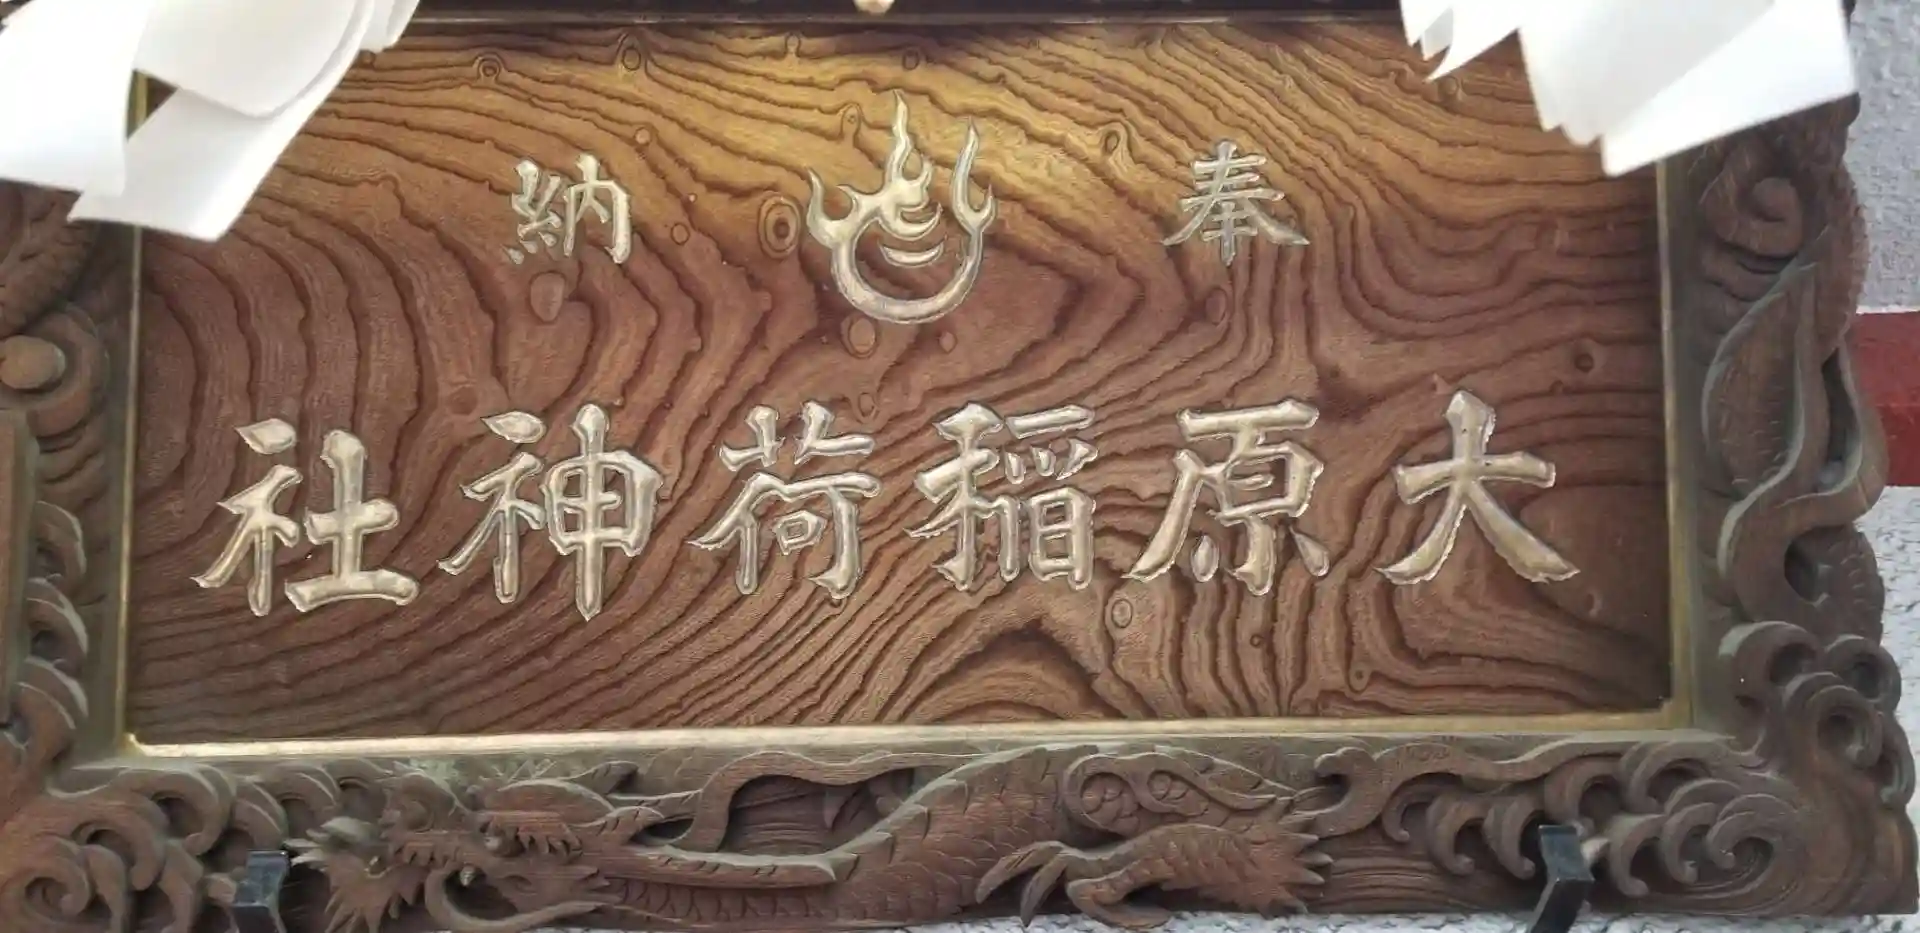 奉納
大原稲荷神社